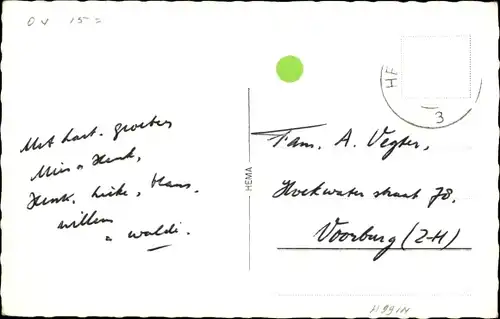 O v 15 =
HE
3
Met hart. groeten
Mien & Henk,
Henk, Lieke, Hans,
Willem
& Waldi.
HEMA
Fam. A. Vegter,
Hoekwater straat 78,
Voorburg (Z-H)